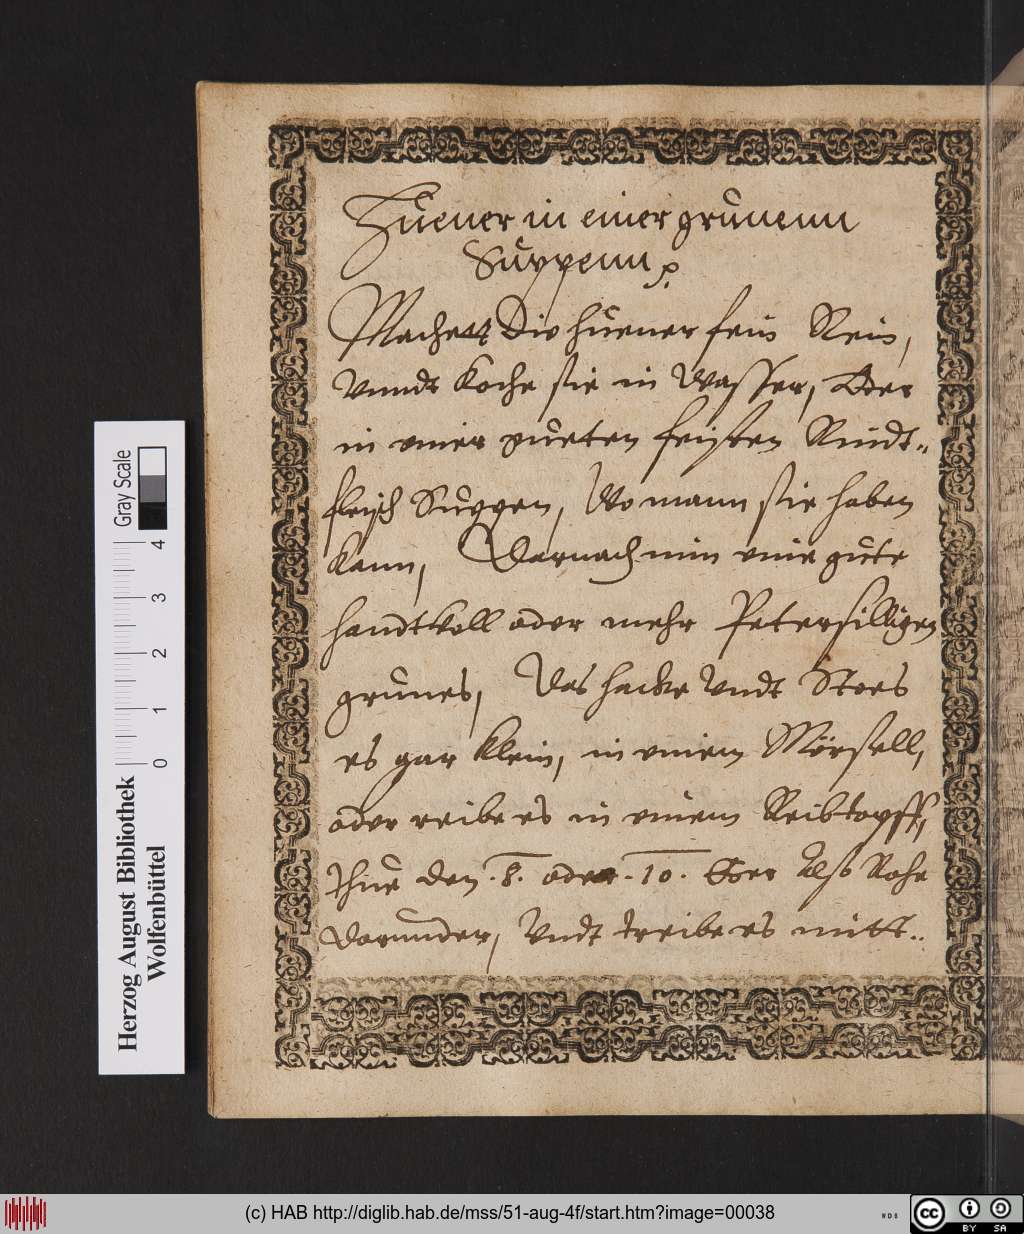 Huener in einer grunenn
Suppenn
Machett Die huener fein Rein,
Vnndt koche sie in Wasser, Oder
in einer gueten feisten Rindt-
fleisch Suppen, Wo mann sie haben
kann, Darnach nim eine gute
handtvoll oder mehr Petersilligen
grunes, Das hacke Vndt Stoes
es gar klein, in einem Mörsell,
oder reibe es in einem Reibtopff,
thue den .8. oder .10. Eÿer Also Rohe
darunder, Vndt treibe es mitt..
Herzog August Bibliothek
Wolfenbüttel
Gray Scale
0 1 2 3 4
(c) HAB http://diglib.hab.de/mss/51-aug-4f/start.htm?image=00038
WDB
cc BY SA